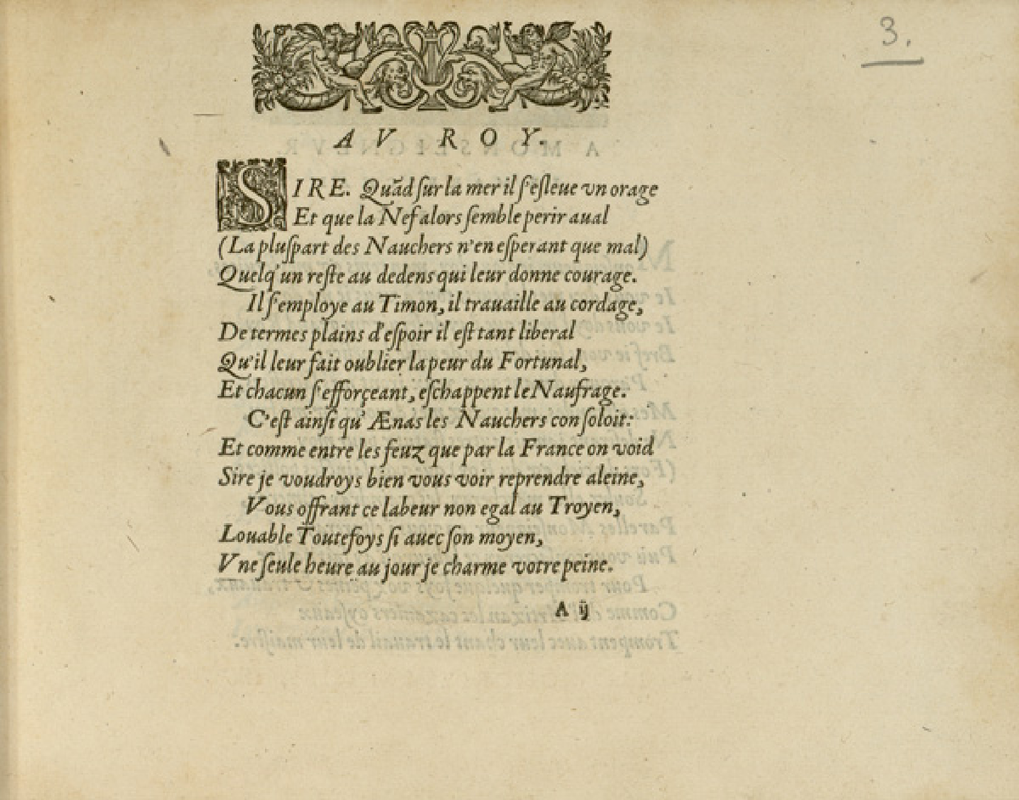 3.
AV ROY.
SIRE. Quãd ſur la mer il ſ'eſleue vn orage
Et que la Nef alors ſemble perir aual
(La pluſpart des Nauchers n'en eſperant que mal)
Quelq'un reſte au dedens qui leur donne courage.
Il ſ'employe au Timon, il trauaille au cordage,
De termes plains d'eſpoir il eſt tant liberal
Qu'il leur fait oublier la peur du Fortunal,
Et chacun ſ'efforçeant, eſchappent le Naufrage.
C'eſt ainſi qu'Ænas les Nauchers conſoloit:
Et comme entre les feuz que par la France on void
Sire je voudroys bien vous voir reprendre aleine,
Vous offrant ce labeur non egal au Troyen,
Louable Toutefoys ſi auec ſon moyen,
Vne ſeule heure au jour je charme votre peine.
A ij